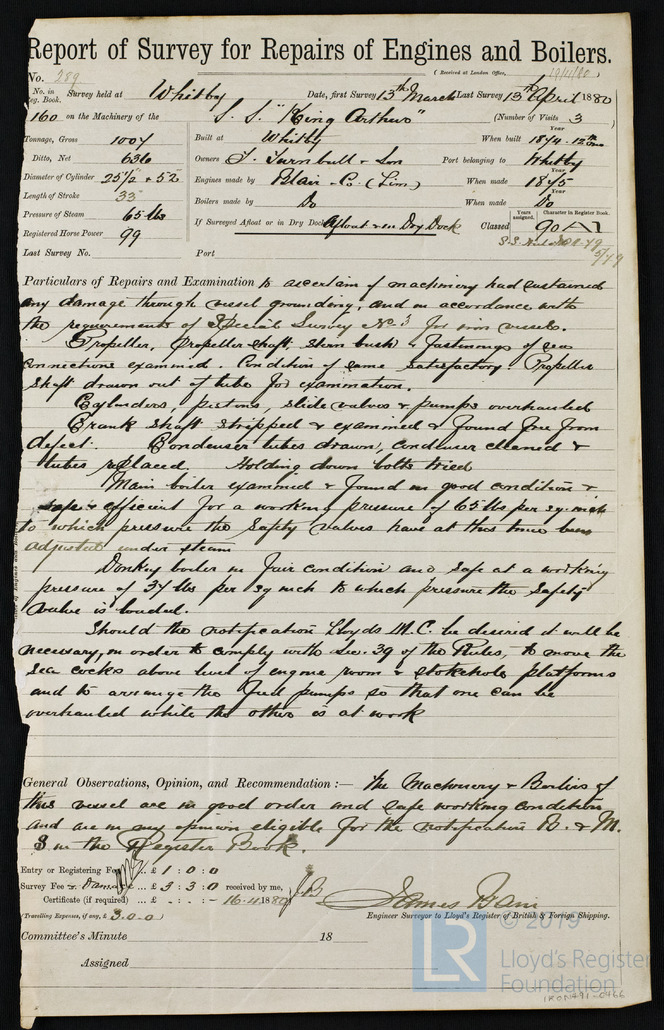 Report of Survey for Repairs of Engines and Boilers.
No. 289 (Received at London Office,
No. in Reg. Book. Survey held at Whitby Date, first Survey 13th March Last Survey 13th April 1880
160 on the Machinery of the S. S. "King Arthur" (Number of Visits 3
Tonnage, Gross 1004 Built at Whitby When built 1874
Ditto, Net 636 Owners T. Turnbull & Son Port belonging to Whitby
Diameter of Cylinder 25 1/2 + 52 Engines made by Blair & Co. When made 1875
Length of Stroke 33 Boilers made by Do When made Do
Pressure of Steam 65 lbs If Surveyed Afloat or in Dry Dock Afloat & in Dry Dock Classed Years assigned. 90 Character in Register Book. A1
Registered Horse Power 99
Last Survey No. Port
Particulars of Repairs and Examination to ascertain if machinery had sustained
any damage through vessel grounding, and in accordance with
the requirements of Special Survey No 3 for iron vessels.
Propeller, propeller shaft, stern bush & fastenings of sea
connections examined. Condition of same satisfactory. Propeller
shaft drawn out of tube for examination.
Cylinders, pistons, slide valves & pumps overhauled
Crank shaft stripped & examined & found free from
defect. Condenser tubes drawn, condenser cleaned &
tubes replaced. Holding down bolts tried
Main boiler examined & found in good condition &
safe & efficient for a working pressure of 65 lbs per sq inch
to which pressure the safety valves have at this time been
adjusted under steam
Donkey boiler in fair condition and safe at a working
pressure of 34 lbs per sq inch to which pressure the safety
valve is loaded.
Should the notification Lloyds M.C. be desired it will be
necessary, in order to comply with Sec. 39 of the Rules, to move the
sea cocks above level of engine room & stokehole platforms
and to arrange the feed pumps so that one can be
overhauled while the other is at work
General Observations, Opinion, and Recommendation:— The Machinery & Boilers of
this vessel are in good order and safe working condition
and are in my opinion eligible for the notification B. & M.
S in the Register Book.
Entry or Registering Fee ... £ 1 : 0 : 0
Survey Fee & Damage ... £ 3 : 3 : 0 received by me,
Certificate (if required) ... £ - : - : - 16.4.1880 JB James Bain
(Travelling Expenses, if any, £ 3.0.0) Engineer Surveyor to Lloyd's Register of British & Foreign Shipping.
Committee's Minute 18
Assigned
© 2019
LR Lloyd's Register
Foundation
IRON491-0466